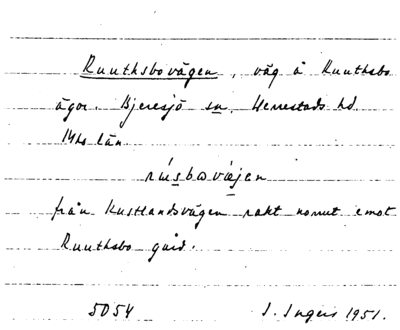 Ruuthsbovägen, väg å Ruuthsbo
ägor. Bjeresjö sn. Herrestads hd
M:hs län
rúsbωvæ̀jen
från Kustlandsvägen rakt norrut emot
Ruuthsbo gård.
5054 I. Ingers 1951.